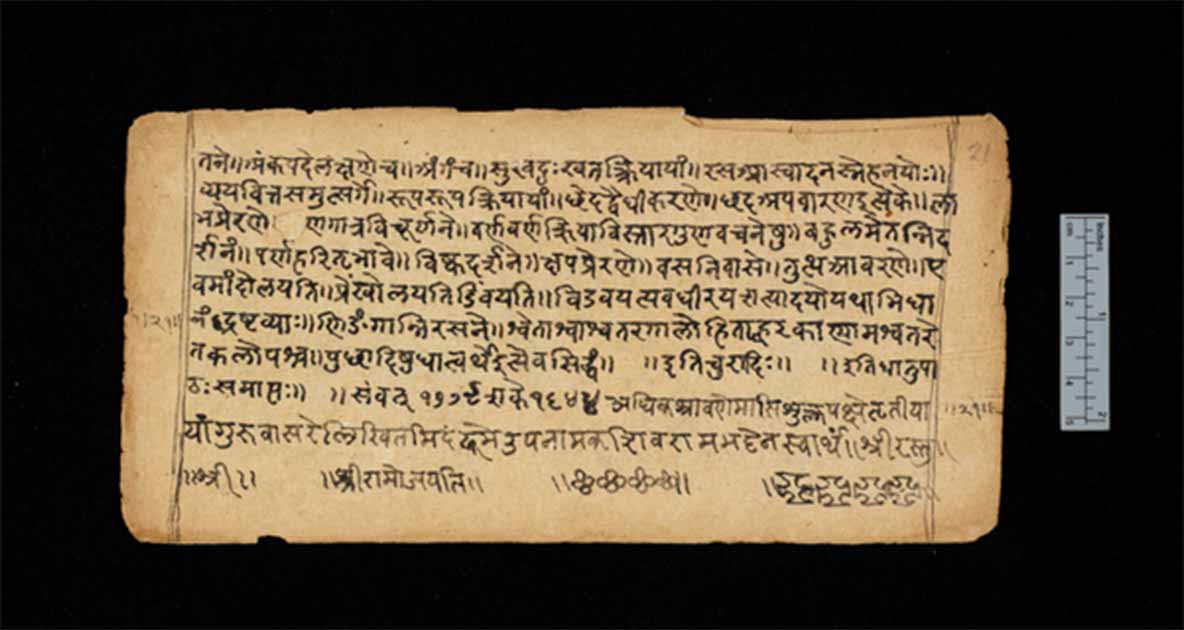 तने॥ अंक पदे लक्षणे च॥ अंग च॥ सुखदुःख तत्क्रियायां॥ रस आस्वादनस्नेहनयोः॥
व्यय वित्तसमुत्सर्गे॥ रूप रूपक्रियायां॥ छेद द्वैधीकरणे॥ छद अपवारण इत्येके॥ ला
भ प्रेरणे॥ व्रण गात्रविचूर्णने॥ वर्ण वर्णक्रियाविस्तारगुणवचनेषु॥ बहुलमेतन्निद
र्शनं॥ पर्ण हरितभावे॥ विष्क दर्शने॥ क्षप प्रेरणे॥ वस निवासे॥ तुत्थ आवरणे॥ ए
वमांदोलयति॥ प्रेंखोलयति विडंबयति॥
द्रष्टव्याः॥ णिङंगान्निरसने॥ श्वेताश्वाश्वतरगालोडिताह्वरकाणामश्वतरे
तकलोपश्च॥ पुच्छादिषु धात्वर्थ इत्येव सिद्धं॥ ॥ इति चुरादिः॥ ॥ इति धातुपा
ठः समाप्तः॥ ॥ संवत् शके अधिकश्रावणे मासि शुक्लपक्षे तृतीया
यां गुरुवासरे लिखितमिदं शिवरामभट्टेन स्वार्थं॥ श्रीरस्तु॥
॥श्री॥ ॥श्रीरामो जयति॥
॥२१॥
॥२१॥
21